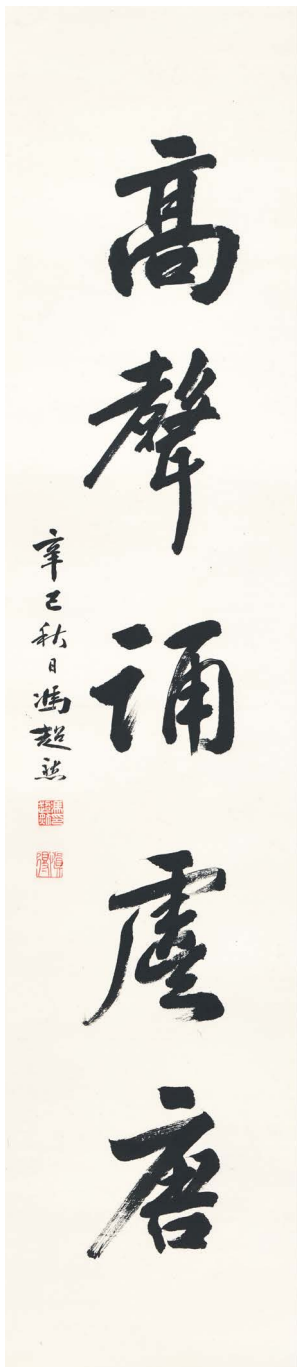 高聲誦虞唐
辛巳秋日馮超然